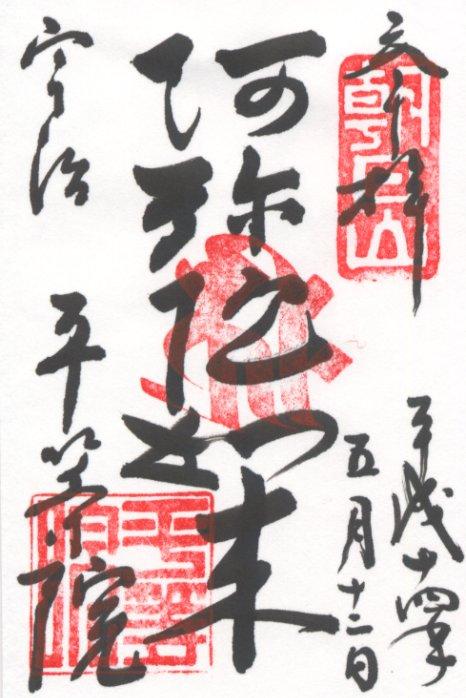 奉拝
朝日山
平成十四年
五月十二日
阿弥陀如来
宇治 平等院
平等院印